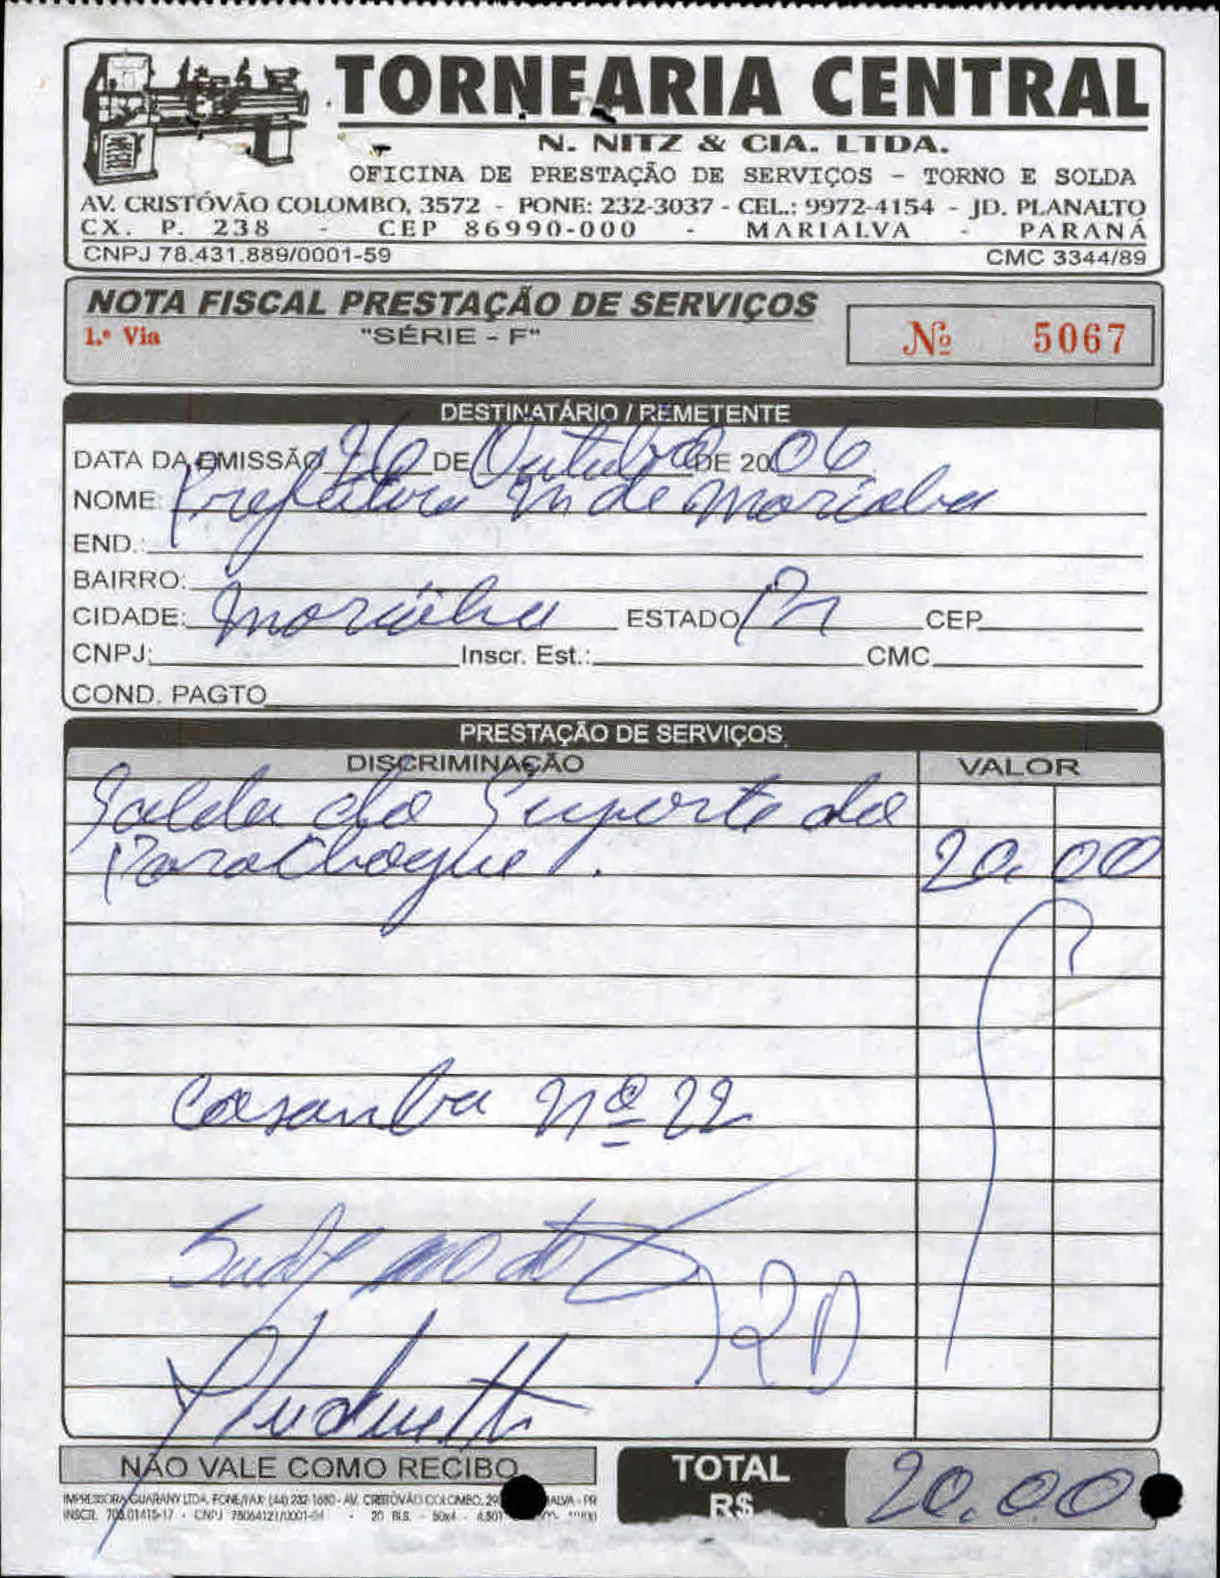 TORNEARIA CENTRAL
N. NITZ & CIA. LTDA.
OFICINA DE PRESTAÇÃO DE SERVIÇOS - TORNO E SOLDA
AV. CRISTÓVÃO COLOMBO, 3572 - FONE: 232-3037 - CEL.: 9972-4154 - JD. PLANALTO
CX. P. 238 - CEP 86990-000 - MARIALVA - PARANÁ
CNPJ 78.431.889/0001-59 CMC 3344/89
NOTA FISCAL PRESTAÇÃO DE SERVIÇOS
1.ª Via "SÉRIE - F" Nº 5067
DESTINATÁRIO / REMETENTE
DATA DA EMISSÃO 26 DE Outubro DE 2006
NOME: Prefeitura M de Marialva
END.:
BAIRRO:
CIDADE: Marialva ESTADO Pr CEP
CNPJ: Inscr. Est.: CMC
COND. PAGTO
PRESTAÇÃO DE SERVIÇOS
DISCRIMINAÇÃO VALOR
Solda do Suporte do
Parachoque. 20,00
Casamba nº 22
NÃO VALE COMO RECIBO
TOTAL
R$ 20,00
IMPRESSORA GUARANY LTDA. FONE/FAX: (44) 232-1680 - AV. CRISTÓVÃO COLOMBO,